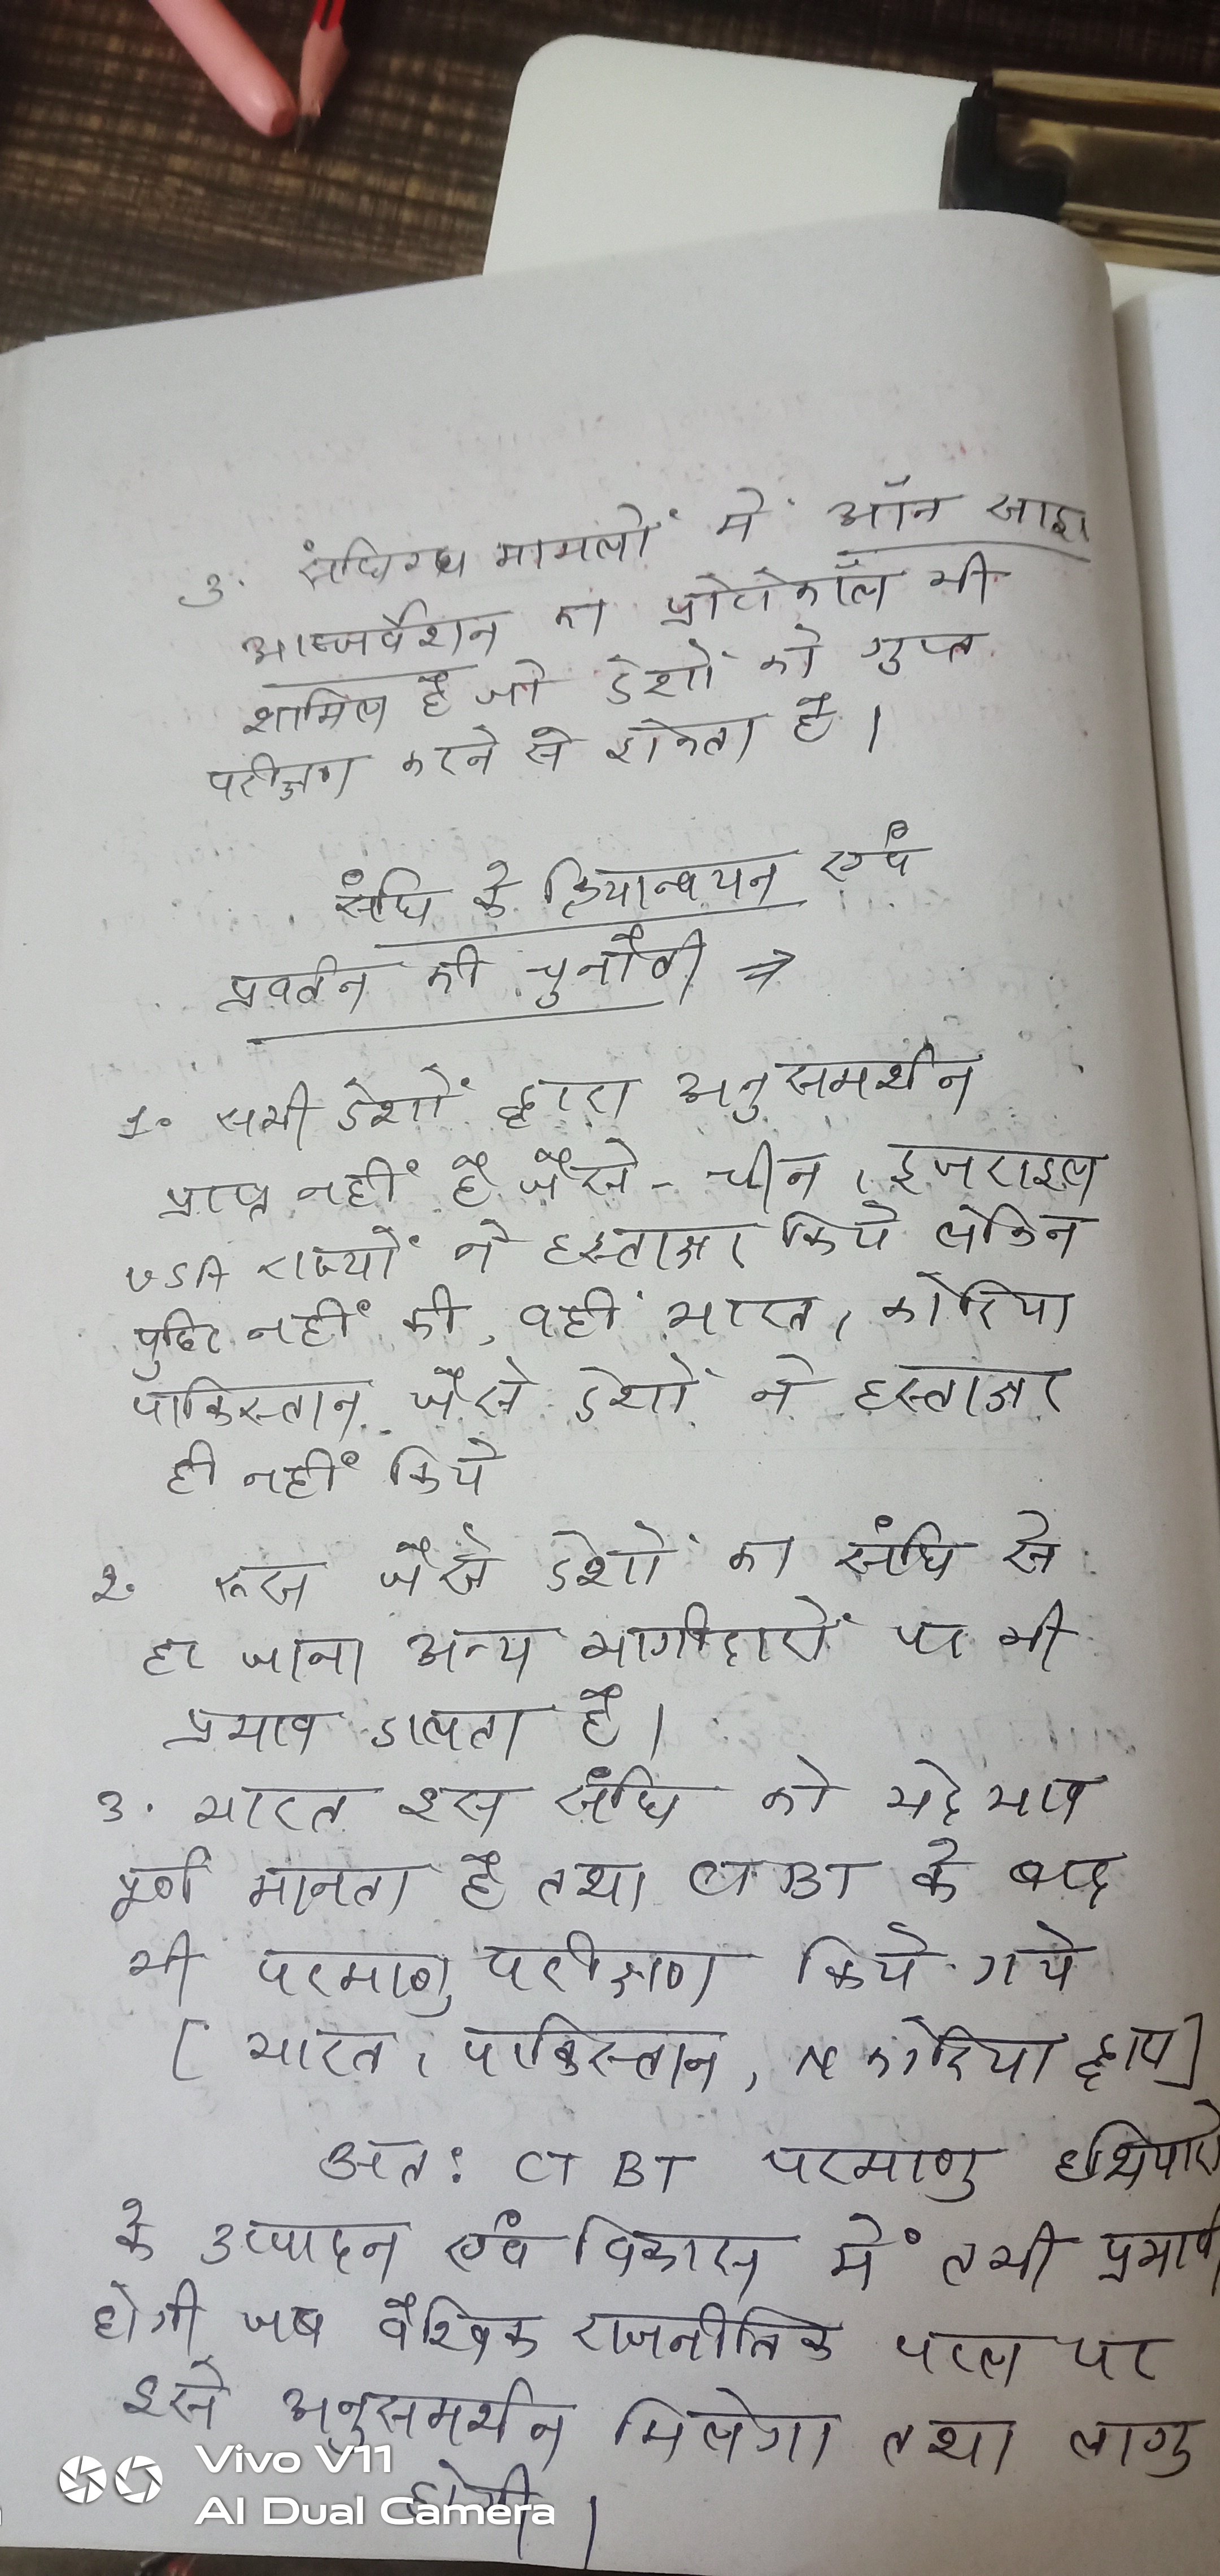 3. संधिग्ध मामलों में ऑन साइट
आब्जर्वेशन का प्रोटोकॉल भी
शामिल है जो देशों को गुप्त
परीक्षण करने से रोकता है।
संधि के क्रियान्वयन एवं
प्रवर्तन की चुनौती ⇒
1. सभी देशों द्वारा अनुसमर्थन
प्राप्त नहीं है जैसे - चीन, इजराइल
USA राज्यों ने हस्ताक्षर किये लेकिन
पुष्टि नहीं की, वहीं भारत, कोरिया
पाकिस्तान जैसे देशों ने हस्ताक्षर
ही नहीं किये
2. रूस जैसे देशों का संधि से
हट जाना अन्य भागीदारों पर भी
प्रभाव डालता है।
3. भारत इस संधि को भेदभाव
पूर्ण मानता है तथा CTBT के बाद
भी परमाणु परीक्षण किये गये
[ भारत, पाकिस्तान, N कोरिया द्वारा ]
अत: CTBT परमाणु हथियारों
के उत्पादन एवं विकास में तभी प्रभावी
होगी जब वैश्विक राजनीतिक पटल पर
इसे अनुसमर्थन मिलेगा तथा लागु
होगी।
Vivo V11
AI Dual Camera